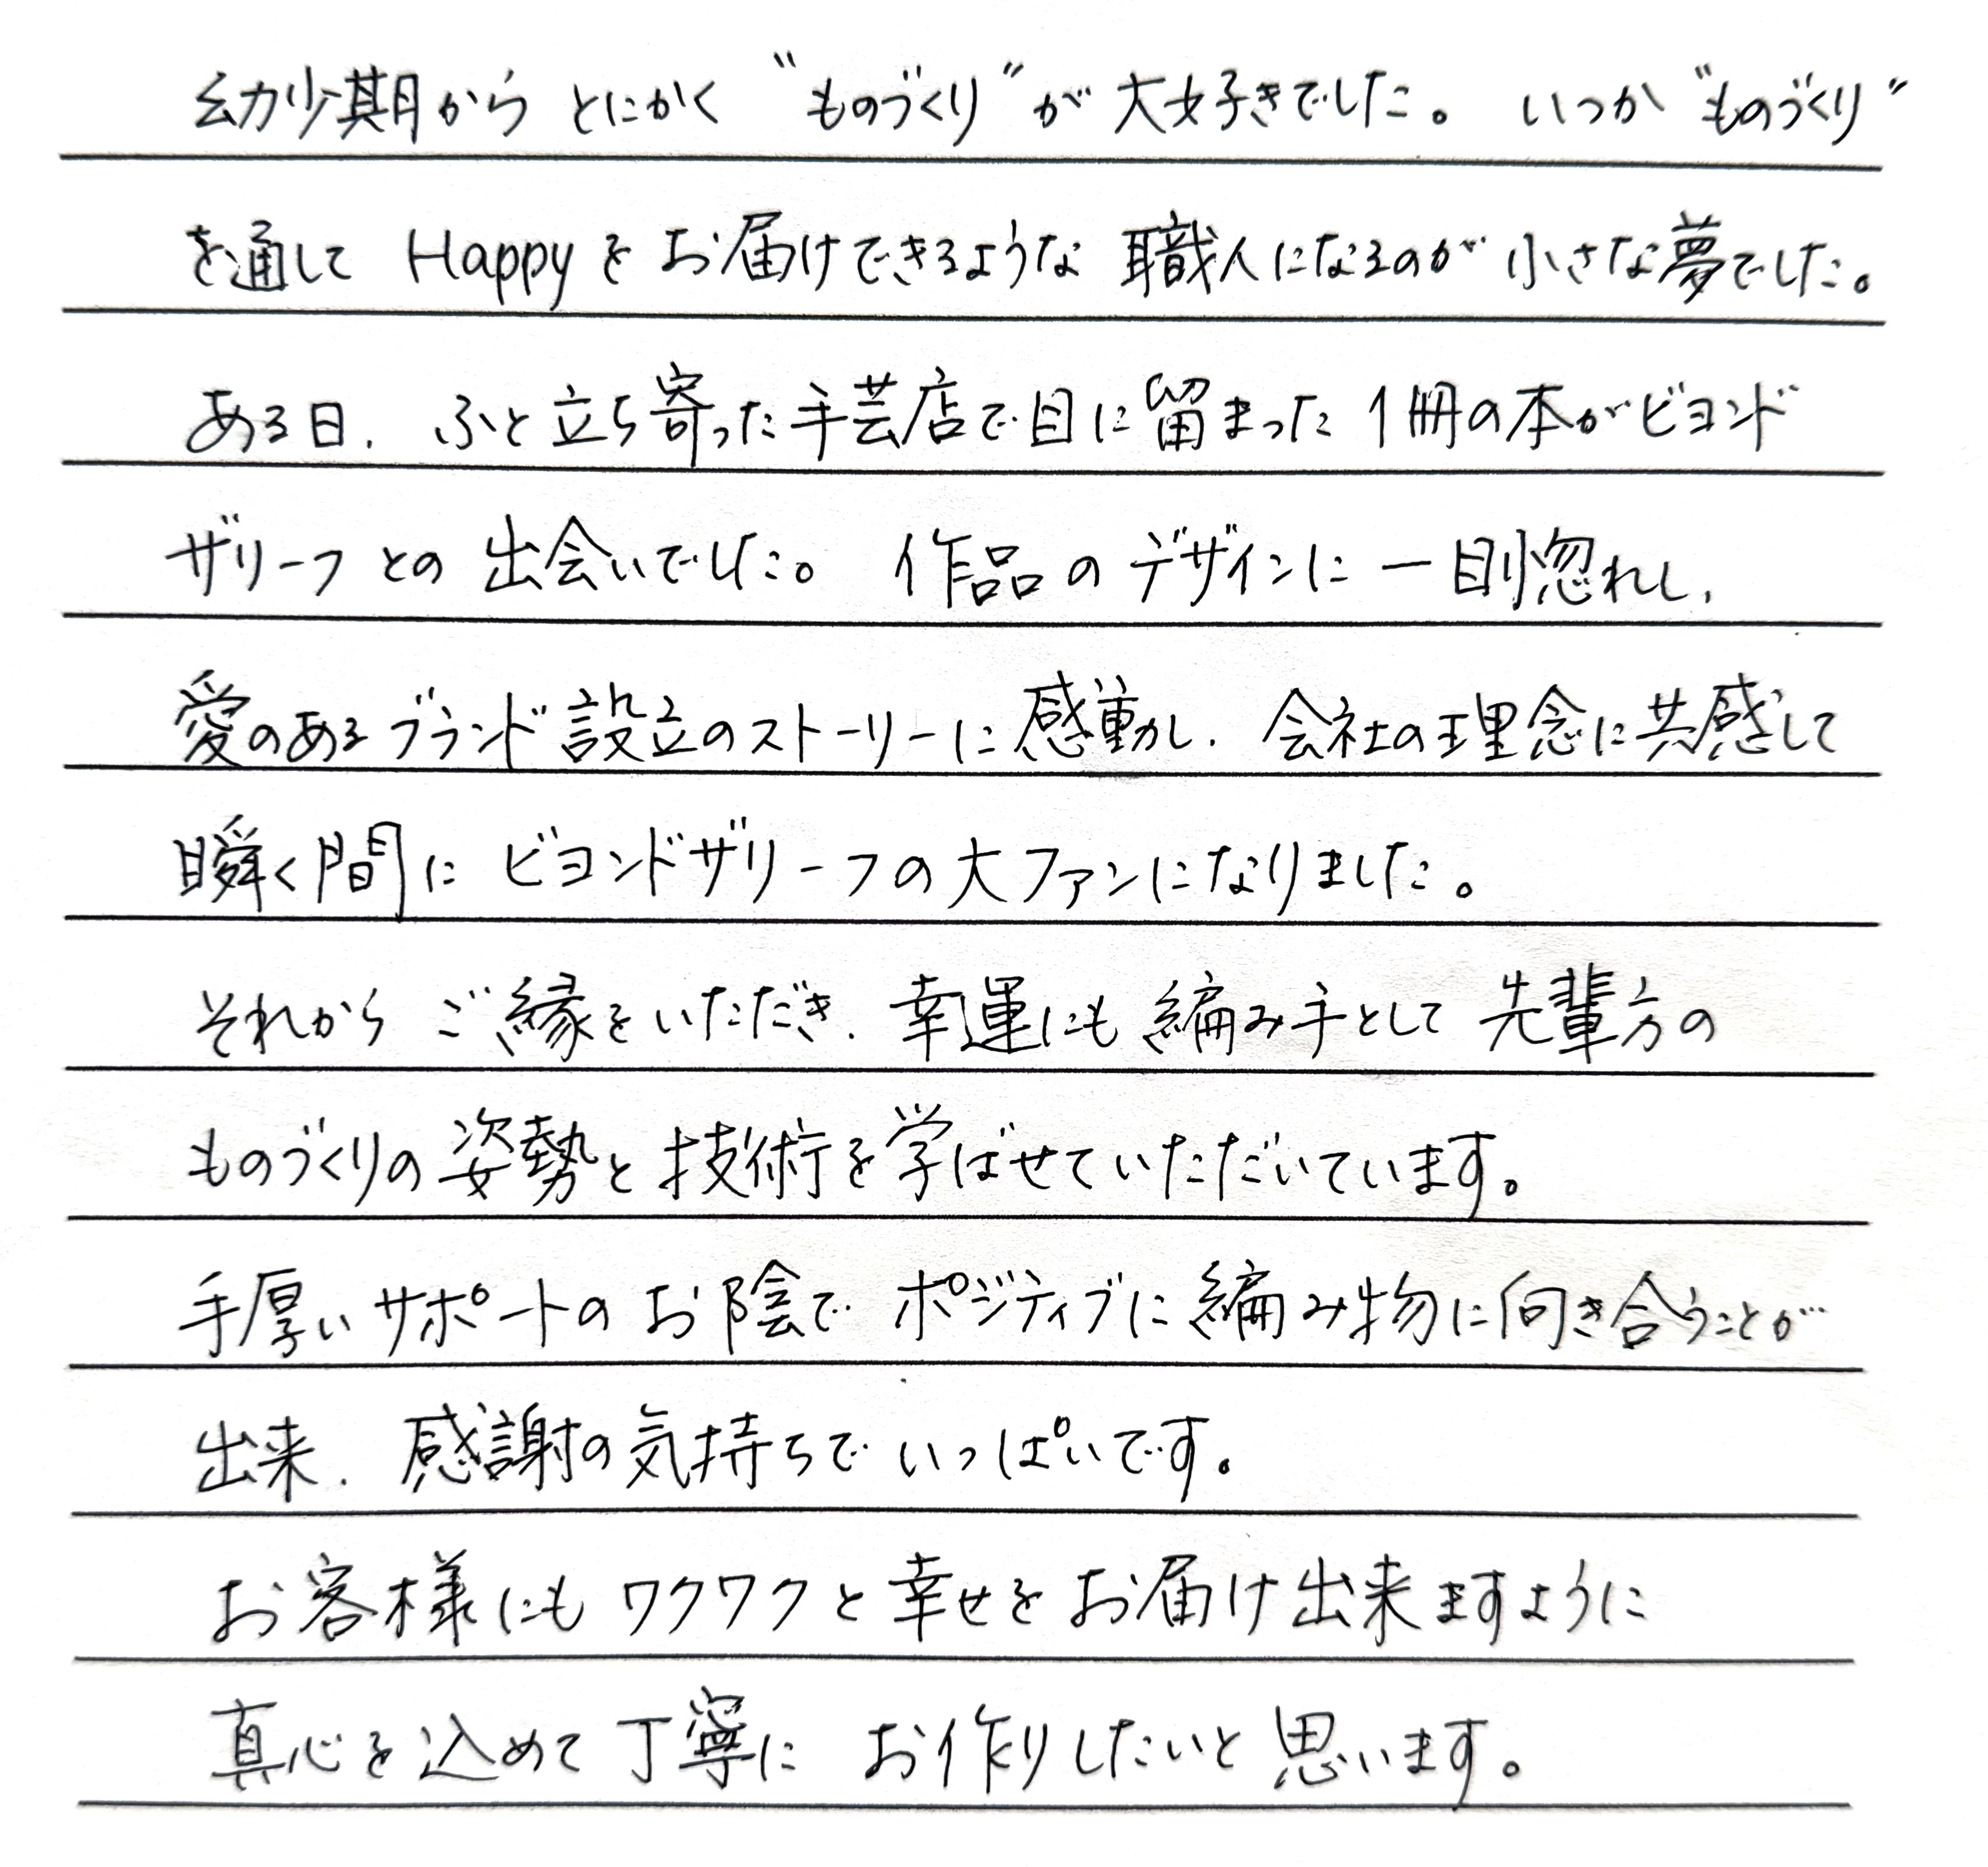 幼少期から とにかく “ものづくり” が 大好きでした。 いつか “ものづくり”
を通して Happyを お届けできるような 職人になるのが 小さな夢でした。
ある日、ふと立ち寄った手芸店で目に留まった1冊の本がビヨンド
ザリーフとの出会いでした。 作品のデザインに一目惚れし、
愛のあるブランド設立のストーリーに感動し、会社の理念に共感して
瞬く間に ビヨンドザリーフの大ファンになりました。
それから ご縁をいただき、幸運にも 編み手として 先輩方の
ものづくりの姿勢と技術を学ばせていただいています。
手厚いサポートの お陰で ポジティブに編み物に向き合うことが
出来、感謝の気持ちで いっぱいです。
お客様にも ワクワクと幸せを お届け出来ますように
真心を込めて 丁寧に お作りしたいと思います。